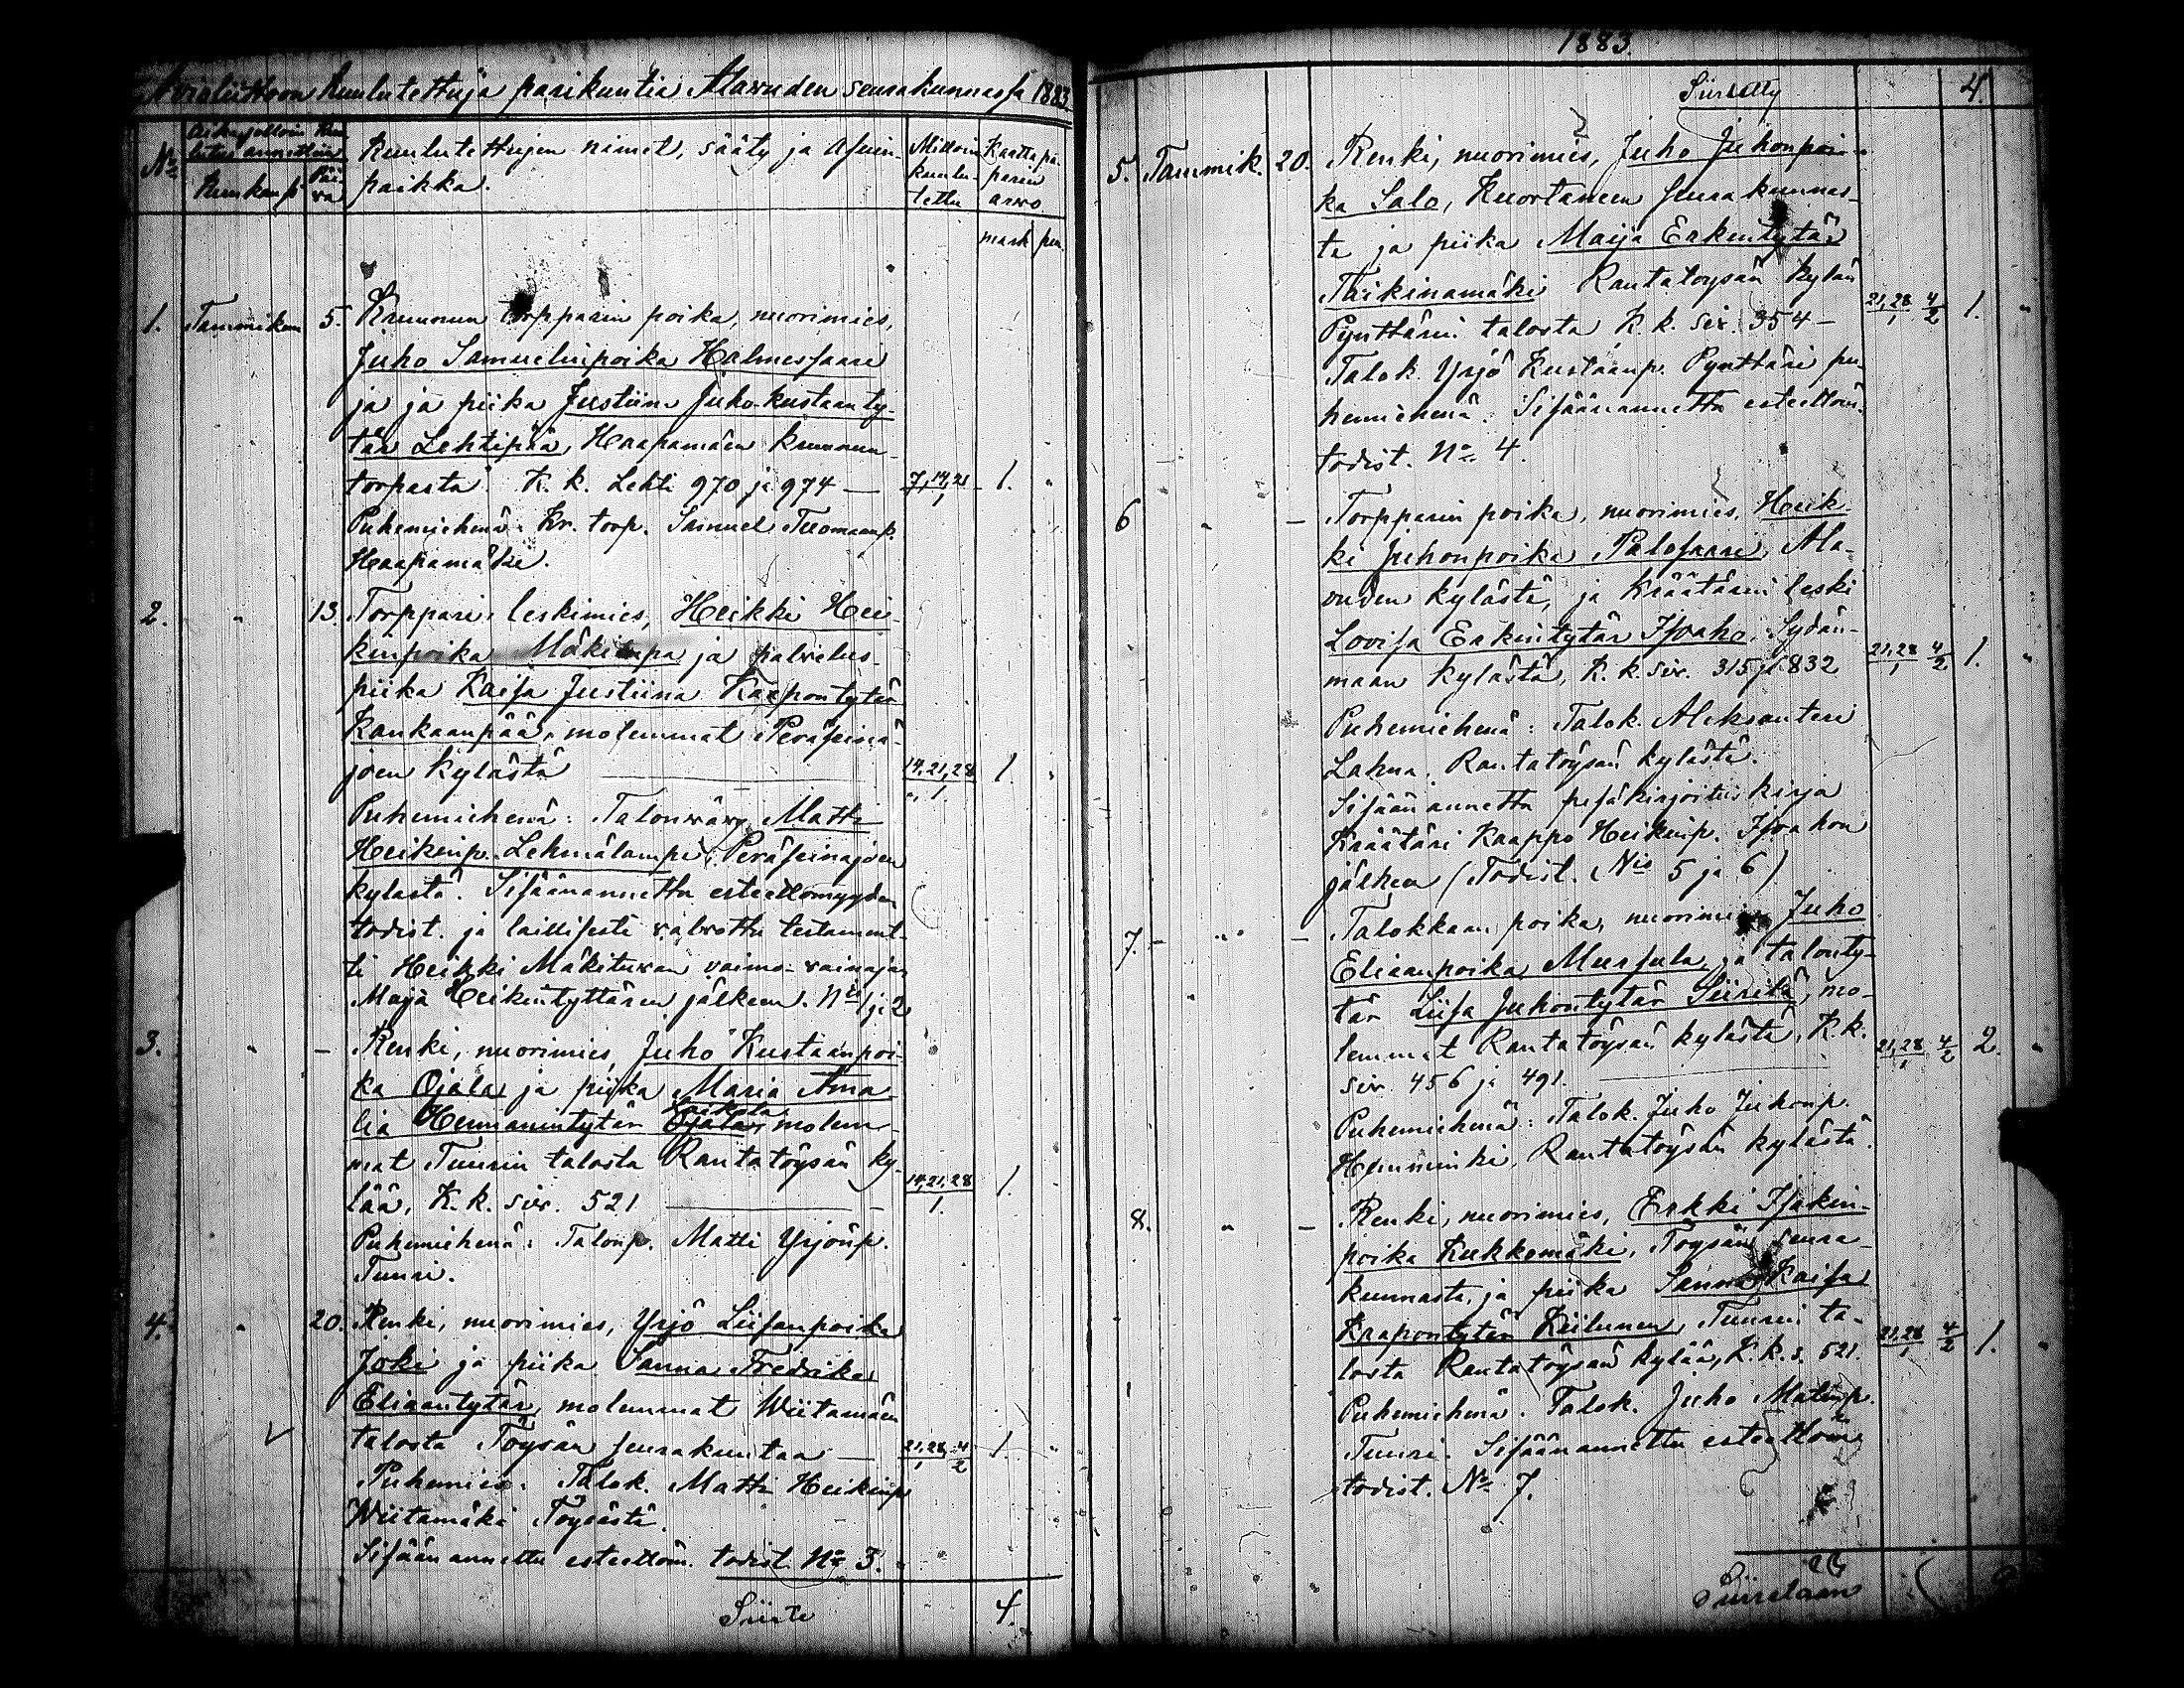 Avioliittoon kuulutettuja parikuntia Alavuden seurakunnassa 1883.
No
Aika, jolloin kuulutus annettiin
Kuukausi
Päivä
Kuulutettujen nimet, sääty ja asuin-
paikka.
Milloin
kuulu-
tettu
Kartta pa-
perin
arvo
mark pen.
1. Tammikuu 5. Kruunun torpparin poika, nuorimies,
Juho Samuelinpoika Halmessaari
ja ja piika Justiina Juho-kustaanty-
tär Lehtipää, Haapamäen kruunun
torpasta. K. k. Lehti 970 ja 974 — 7,14,21/1 1. "
Puhemiehenä: Kr. torp. Samuel Tuomaanp.
Haapamäki.
2. " 13. Torppari, leskimies, Heikki Hei-
kinpoika Mäkitupa ja palvelus-
piika Kaisa Justiina Kaapontytär
Kankaanpää, molemmat Peräseinä-
joen kylästä — 14,21,28/1 1. "
Puhemiehenä: Talonvävy Matti
Heikinp. Lehmälampi, Peräseinäjoen
kylästä. Sisäänannettu esteettömyyden
todist. ja laillisesti valvottu testament-
ti Heikki Mäkituvan vaimo-vainajan
Maija Heikintyttären jälkeen. No 1 ja 2
3. " – Renki, nuorimies, Juho Kustaanpoi-
ka Ojala ja piika Maria Ama-
lia Hermannintytär Ojala, molem-
mat Tuurin talosta Rantatöysän ky-
lää, K. k. siv. 521 — 14,21,28/1. 1. "
Puhemiehenä: Talonp. Matti Yrjönp.
Tuuri.
4. " 20. Renki, nuorimies, Yrjö Liisanpoika
Joki ja piika Sanna Fredrika
Eliaantytär, molemmat Wiitamäen
talosta Töysän seurakuntaa — 21,28/1 4/2 1. "
Puhemies: Talok. Matti Heikinp.
Wiitamäki Töysästä.
Sisäänannettu esteettöm. todist. No 3.
Siirto 4.
1883.
Siirretty 4.
5. Tammik. 20. Renki, nuorimies, Juho Juhonpoi-
ka Salo, Kuortaneen seurakunnas-
ta ja piika Maija Erkintytär
Taikinamäki Rantatöysän kylän
Pynttärin talosta K. k. siv. 354 – 21,28/1 4/2 1. "
Talok. Yrjö Kustaanp. Pynttäri pu-
hemiehenä. Sisäänannettu esteettöm.
todist. No 4.
6 " – Torpparin poika, nuorimies, Heik-
ki Juhonpoika Palosaari, Ala-
vuden kylästä, ja Kräätärin leski
Lovisa Erkintytär Isoaho, Sydän-
maan kylästä, K. k. siv. 315 ja 832 21,28/1 4/2 1. "
Puhemiehenä: Talok. Aleksanteri
Lahna, Rantatöysän kylästä.
Sisäänannettu pesäkirjoituskirja
Kräätäri Kaappo Heikinp. Isoahon
jälkeen (Todist. No 5 ja 6)
7. " – Talokkaan poika, nuorimies Juho
Eliaanpoika Mursula ja talonty-
tär Liisa Juhontytär Siirilä, mo-
lemmat Rantatöysän kylästä, K. k.
siv. 456 ja 491. — 21,28/1 4/2 2. "
Puhemiehenä: Talok. Juho Juhonp.
Hemminki, Rantatöysän kylästä.
8. " – Renki, nuorimies, Erkki Isakin-
poika Kukkemäki, Töysän seura-
kunnasta, ja piika Sanna Kaisa
Kaapontytär Kiilunen, Tuurin ta-
losta Rantatöysän kylää, K. k. s. 521. 21,28/1 4/2 1. "
Puhemiehenä. Talok. Juho Matinp.
Tuuri. Sisäänannettu esteettöm.
todist. No 7.
Siirretään 9